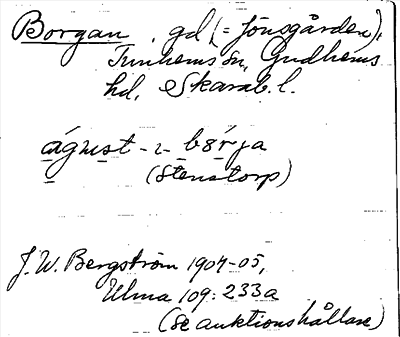 Borgan, gd (= Jönsgården),
Trinhems sn, Gudhems
hd, Skarab. l.
águst - i - börja
(Stenstorp)
J. W. Bergström 1904-05,
Ulma 109: 233a
(se auktionshållare)